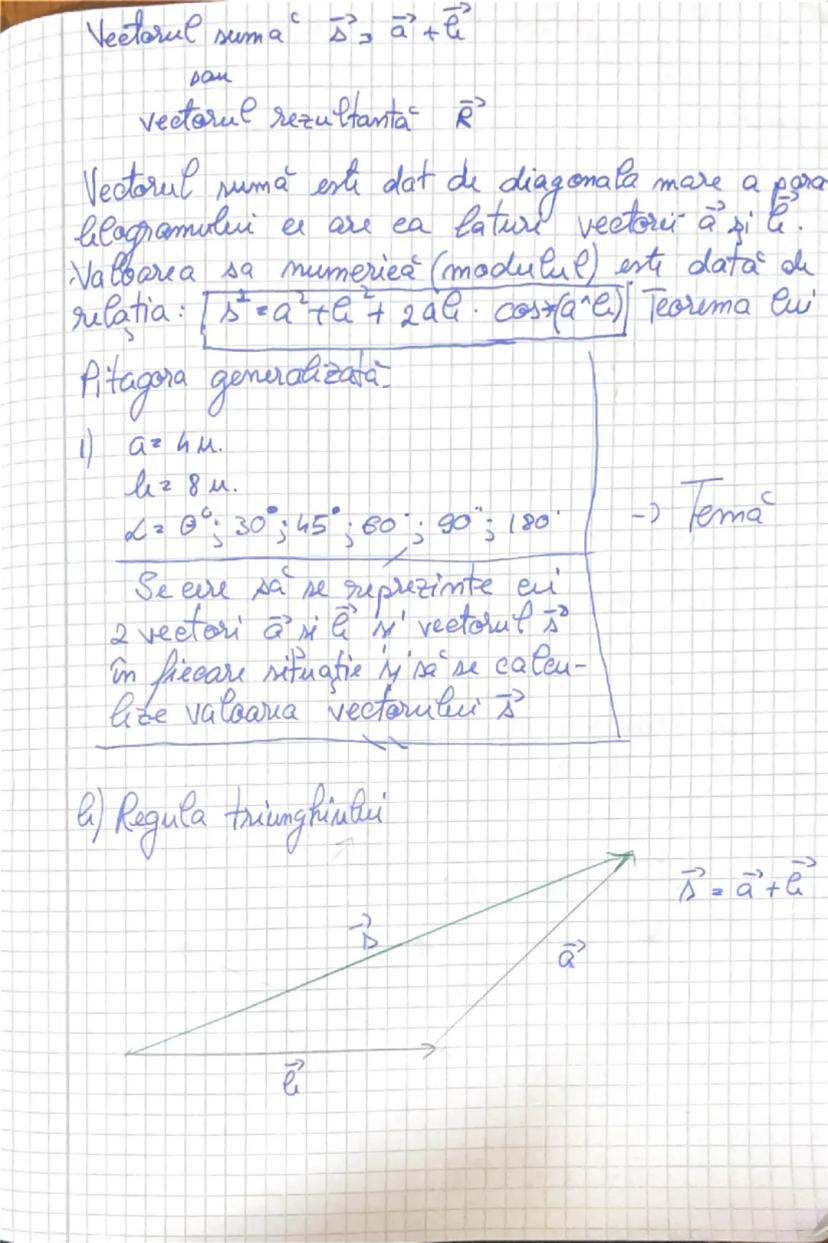 Vectorul sumă s⃗ = a⃗ + b⃗
sau
vectorul rezultantă R⃗
Vectorul sumă este dat de diagonala mare a para
lelogramului ce are ca laturi vectorii a⃗ și b⃗.
Valoarea sa numerică (modulul) este dată de
relația: s² = a² + b² + 2ab · cos(a^b) Teorema lui
Pitagora generalizată
1) a = 4 u.
b = 8 u.
α = 0°; 30°; 45°; 60°; 90°; 180° → Temă
Se cere să se reprezinte cei
2 vectori a⃗ și b⃗ și vectorul s⃗
în fiecare situație și să se calcu-
leze valoarea vectorului s⃗
b) Regula triunghiului
s⃗ = a⃗ + b⃗
s⃗
a⃗
b⃗